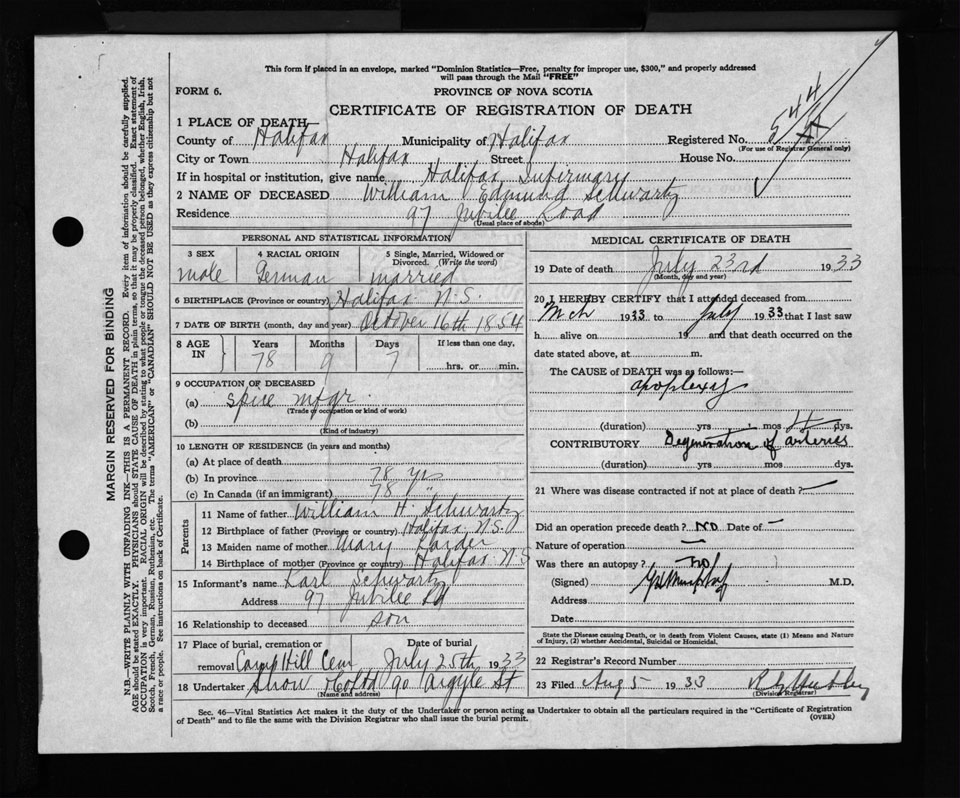 This form if placed in an envelope, marked "Dominion Statistics—Free, penalty for improper use, $300," and properly addressed
will pass through the Mail "FREE"
FORM 6.
PROVINCE OF NOVA SCOTIA
CERTIFICATE OF REGISTRATION OF DEATH
1 PLACE OF DEATH—
County of Halifax Municipality of Halifax Registered No. 544
(For use of Registrar General only)
City or Town Halifax Street House No.
If in hospital or institution, give name Halifax Infirmary
2 NAME OF DECEASED William Edmund Schwartz
Residence 97 Jubilee Road
(Usual place of abode)
PERSONAL AND STATISTICAL INFORMATION
3 SEX 4 RACIAL ORIGIN 5 Single, Married, Widowed or Divorced. (Write the word)
male German married
6 BIRTHPLACE (Province or country) Halifax N.S.
7 DATE OF BIRTH (month, day and year) October 16th 1854
8 AGE IN Years Months Days If less than one day,
78 9 7 hrs. or min.
9 OCCUPATION OF DECEASED
(a) Spice mfgr.
(Trade or occupation or kind of work)
(b)
(Kind of industry)
10 LENGTH OF RESIDENCE (in years and months)
(a) At place of death
(b) In province 78 yrs
(c) In Canada (if an immigrant) 78 "
Parents
11 Name of father William H. Schwartz
12 Birthplace of father (Province or country) Halifax N.S.
13 Maiden name of mother Mary
14 Birthplace of mother (Province or country) Halifax N.S
15 Informant's name Karl Schwartz
Address 97 Jubilee Rd
16 Relationship to deceased son
17 Place of burial, cremation or Date of burial
removal Camp Hill Cem July 25th 1933
18 Undertaker Snow & Co Ltd 90 Argyle St
(Name and address)
MEDICAL CERTIFICATE OF DEATH
19 Date of death July 23rd 1933
(Month, day and year)
20 I HEREBY CERTIFY that I attended deceased from
Mch 1933 to July 1933 that I last saw
h alive on 19 and that death occurred on the
date stated above, at m.
The CAUSE of DEATH was as follows:—
apoplexy
(duration) yrs mos 4 dys.
CONTRIBUTORY Degeneration of arteries
(duration) yrs mos dys.
21 Where was disease contracted if not at place of death? —
Did an operation precede death? No Date of —
Nature of operation —
Was there an autopsy? no
(Signed) M.D.
Address
Date
State the Disease causing Death, or in death from Violent Causes, state (1) Means and Nature
of Injury, (2) whether Accidental, Suicidal or Homicidal.
22 Registrar's Record Number
23 Filed Aug 5 1933
(Division Registrar)
Sec. 46—Vital Statistics Act makes it the duty of the Undertaker or person acting as Undertaker to obtain all the particulars required in the "Certificate of Registration
of Death" and to file the same with the Division Registrar who shall issue the burial permit.
(OVER)
MARGIN RESERVED FOR BINDING
N.B.—WRITE PLAINLY WITH UNFADING INK—THIS IS A PERMANENT RECORD. Every item of information should be carefully supplied.
AGE should be stated EXACTLY. PHYSICIANS should STATE CAUSE OF DEATH in plain terms, so that it may be properly classified. Exact statement of
OCCUPATION is very important. RACIAL ORIGIN will be described by stating to what people or tongue the deceased person belonged, whether English, Irish,
Scotch, French, German, Russian, Ruthenian, etc. The terms "AMERICAN" or "CANADIAN" SHOULD NOT BE USED as they express citizenship but not
a race or people. See instructions on back of Certificate.